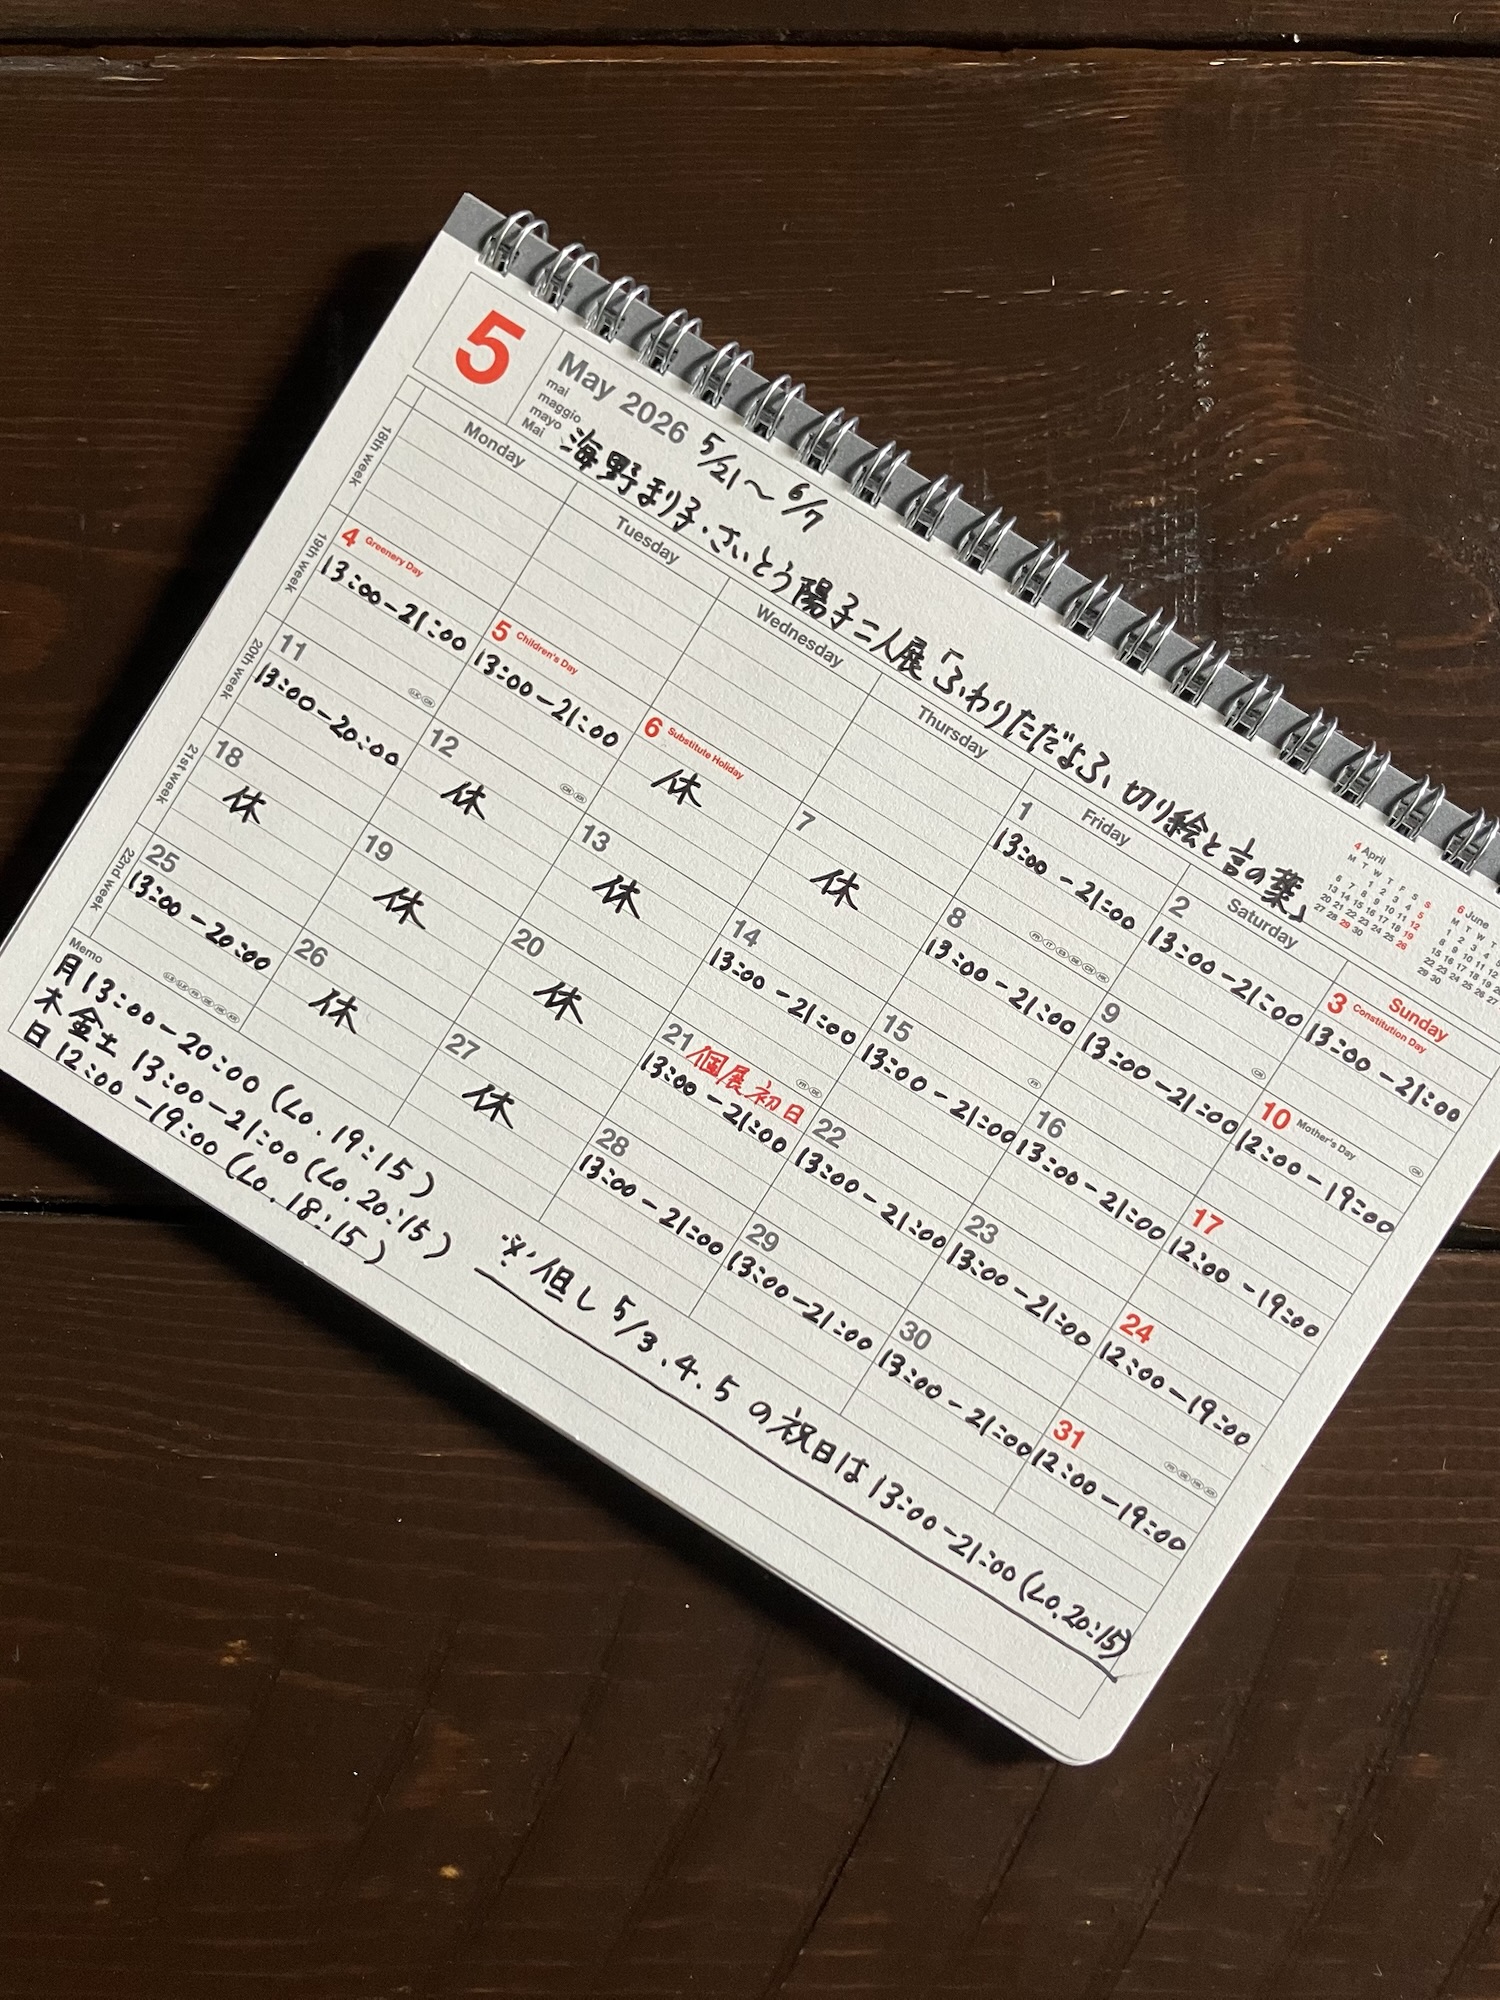 5
May 2026
mai
maggio
mayo
Mai
5/21〜6/7
海野まり子・さいとう陽子二人展「ふわりただよふ 切り絵と言の葉」
4 April
M T W T F S S
1 2 3 4 5
6 7 8 9 10 11 12
13 14 15 16 17 18 19
20 21 22 23 24 25 26
27 28 29 30
6 June
M T W T
1 2 3 4
8 9 10
15 16 17
22 23 24 25
29 30
Monday Tuesday Wednesday Thursday Friday Saturday Sunday
18th week
1
13:00-21:00
2
13:00-21:00
3 Constitution Day
13:00-21:00
19th week
4 Greenery Day
13:00-21:00
5 Children's Day
13:00-21:00
6 Substitute Holiday
休
7
休
8
13:00-21:00
9
13:00-21:00
10 Mother's Day
12:00-19:00
20th week
11
13:00-20:00
12
休
13
休
14
13:00-21:00
15
13:00-21:00
16
13:00-21:00
17
12:00-19:00
21st week
18
休
19
休
20
休
21 個展初日
13:00-21:00
22
13:00-21:00
23
13:00-21:00
24
12:00-19:00
22nd week
25
13:00-20:00
26
休
27
休
28
13:00-21:00
29
13:00-21:00
30
13:00-21:00
31
12:00-19:00
Memo
月 13:00-20:00 (Lo. 19:15)
木金土 13:00-21:00 (Lo. 20:15)
日 12:00-19:00 (Lo. 18:15)
※但し 5/3.4.5 の祝日は 13:00-21:00 (Lo.20:15)